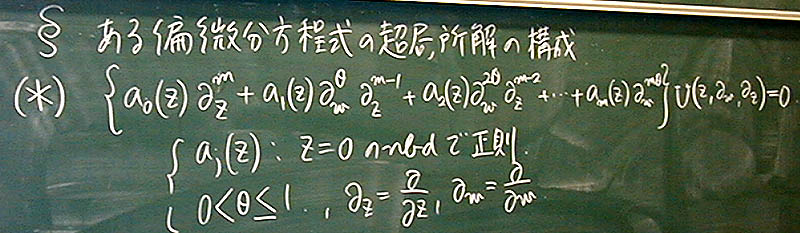 § ある偏微分方程式の超局所解の構成
(*) {a₀(z)∂_z^m + a₁(z)∂_w^θ ∂_z^{m-1} + a₂(z)∂_w^{2θ} ∂_z^{m-2} + ⋯ + a_m(z)∂_w^{mθ}} U(z, ∂_w, ∂_z) = 0
{ a_j(z) : z=0 の nbd で正則.
0 < θ ≤ 1 . , ∂_z = ∂/∂z , ∂_w = ∂/∂w